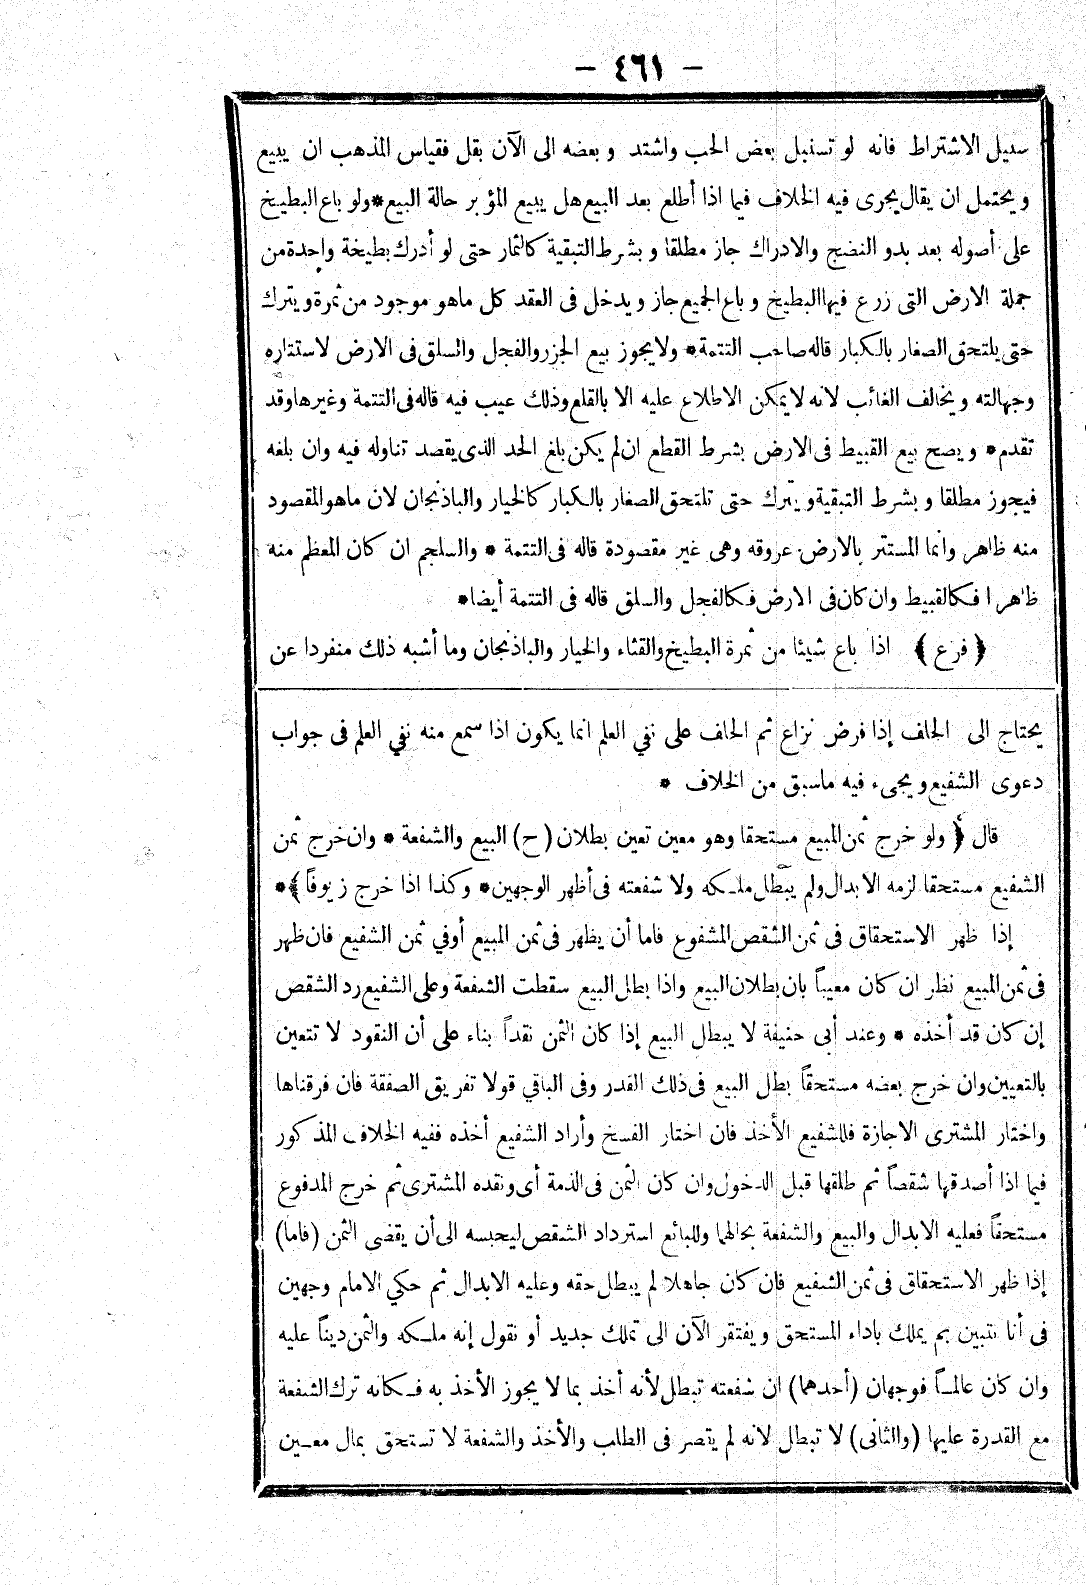 — ٤٦١ —
سبيل الاشتراط فانه لو تسنبل بعض الحب واشتد وبعضه الى الآن بقل فقياس المذهب ان يبيع
ويحتمل ان يقال يجرى فيه الخلاف فيما اذا أطلع بعد البيع هل يبيع المؤبر حالة البيع * ولو باع البطيخ
على أصوله بعد بدو النضج والادراك جاز مطلقا وبشرط التبقية كالثمار حتى لو أدرك بطيخة واحدة من
جملة الارض التى زرع فيها البطيخ وباع الجميع جاز ويدخل فى العقد كل ماهو موجود من ثمرة ويترك
حتى يلتحق الصغار بالكبار قاله صاحب التتمة * ولا يجوز بيع الجزر والفجل والسلق فى الارض لاستتاره
وجهالته ويخالف الغائب لانه لا يمكن الاطلاع عليه الا بالقلع وذلك عيب فيه قاله فى التتمة وغيرها وقد
تقدم * ويصح بيع القبيط فى الارض بشرط القطع ان لم يكن بلغ الحد الذى يقصد تناوله فيه وان بلغه
فيجوز مطلقا وبشرط التبقية ويترك حتى تلتحق الصغار بالكبار كالخيار والباذنجان لان ماهو المقصود
منه ظاهر وانما المستتر بالارض عروقه وهى غير مقصودة قاله فى التتمة * والسلجم ان كان المعظم منه
ظاهرا فكالقبيط وان كان فى الارض فكالفجل والسلق قاله فى التتمة أيضا *
﴿ فرع ﴾ اذا باع شيئا من ثمرة البطيخ والقثاء والخيار والباذنجان وما أشبه ذلك منفردا عن
يحتاج الى الحلف إذا فرض نزاع ثم الحلف على نفي العلم انما يكون اذا سمع منه نفي العلم فى جواب
دعوى الشفيع ويجىء فيه ماسبق من الخلاف *
قال ﴿ ولو خرج ثمن المبيع مستحقا وهو معين تعين بطلان (ح) البيع والشفعة * وان خرج ثمن
الشفيع مستحقا لزمه الابدال ولم يبطل ملكه ولا شفعته فى أظهر الوجهين * وكذا اذا خرج زيوفاً ﴾ *
إذا ظهر الاستحقاق فى ثمن الشقص المشفوع فاما أن يظهر فى ثمن المبيع أوفي ثمن الشفيع فان ظهر
فى ثمن المبيع نظر ان كان معيباً بان بطلان البيع واذا بطل البيع سقطت الشفعة وعلى الشفيع رد الشقص
إن كان قد أخذه * وعند أبى حنيفة لا يبطل البيع إذا كان الثمن نقداً بناء على أن النقود لا تتعين
بالتعيين وان خرج بعضه مستحقاً بطل البيع فى ذلك القدر وفى الباقي قولا تفريق الصفقة فان فرقناها
واختار المشترى الاجازة فللشفيع الأخذ فان اختار الفسخ وأراد الشفيع أخذه ففيه الخلاف المذكور
فيما اذا أصدقها شقصاً ثم طلقها قبل الدخول وان كان الثمن فى الذمة أى ونقده المشترى ثم خرج المدفوع
مستحقاً فعليه الابدال والبيع والشفعة بحالهما وللبائع استرداد الشقص ليحبسه الى أن يقضى الثمن (فاما)
إذا ظهر الاستحقاق فى ثمن الشفيع فان كان جاهلا لم يبطل حقه وعليه الابدال ثم حكي الامام وجهين
فى أنا نتبين بم يملك باداء المستحق ويفتقر الآن الى تملك جديد أو نقول إنه ملكه والثمن ديناً عليه
وان كان عالمـاً فوجهان (أحدهما) ان شفعته تبطل لأنه أخذ بما لا يجوز الأخذ به فكانه ترك الشفعة
مع القدرة عليها (والثانى) لا تبطل لانه لم يقصر فى الطلب والأخذ والشفعة لا تستحق بمال معين